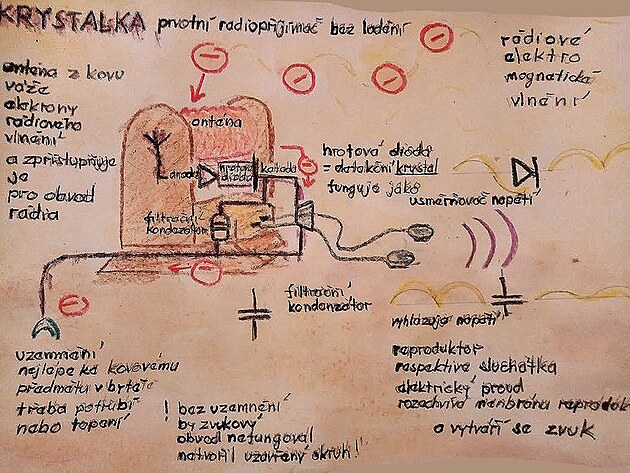 KRYSTALKA prvotní radiopřijímač bez ladění
rádiové
elektro
magnetické
vlnění
antena z kovu
váže
elekrony
rádiového
vlnění
a zpřístupňuje
je
pro obvod
radia
antena
anoda
hrotová
dioda
katoda
hrotová dioda
= detekční krystal
funguje jako
usměrňovač napětí
filtrační
kondezátor
filtrační
kondenzátor
vyhlazuje napětí
uzemnění
nejlépe ke kovovému
předmětu v bytě
třeba potrubí
nebo topení
! bez uzemnění
by zvukový
obvod nefungoval
netvořil uzavřený okruh!
reproduktor
respektive sluchátka
elektrický proud
rozechvívá menbránu reproduk
a vytváří se zvuk